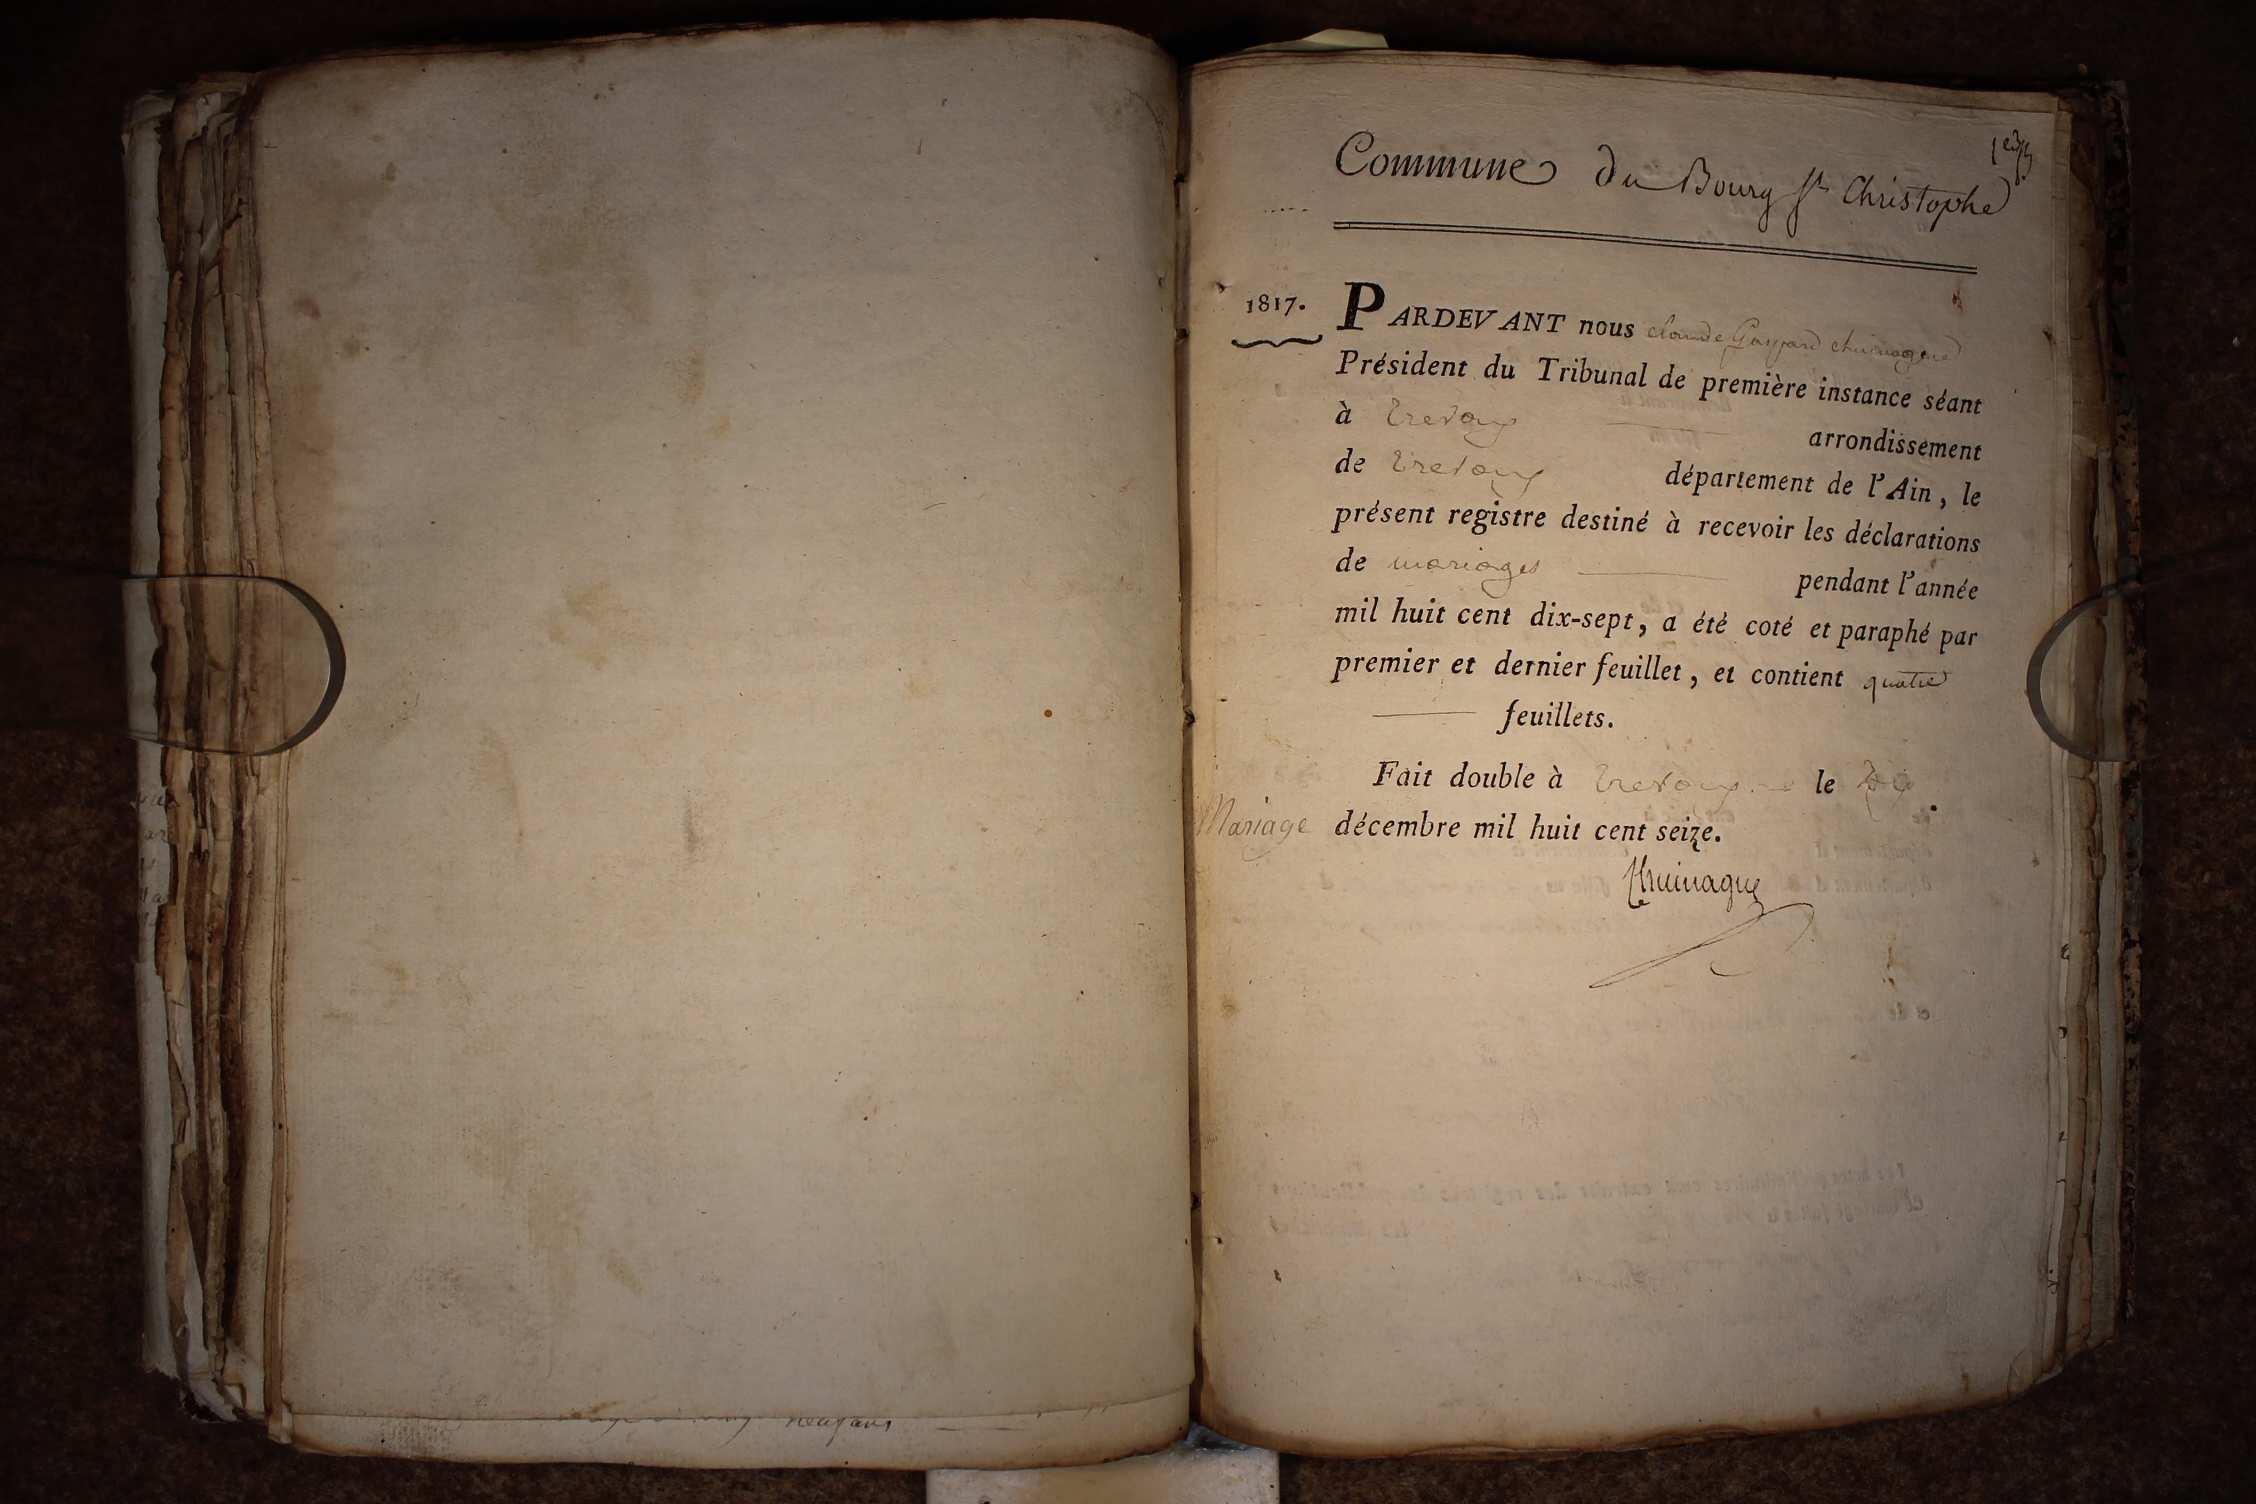 Commune du Bourg St Christophe
1817.
PARDEVANT nous Claude Gaspard
Président du Tribunal de première instance séant
à Trevoux arrondissement
de Trevoux département de l'Ain, le
présent registre destiné à recevoir les déclarations
de mariages pendant l'année
mil huit cent dix-sept, a été coté et paraphé par
premier et dernier feuillet, et contient quatre
feuillets.
Fait double à Trevoux le
Mariage
décembre mil huit cent seize.